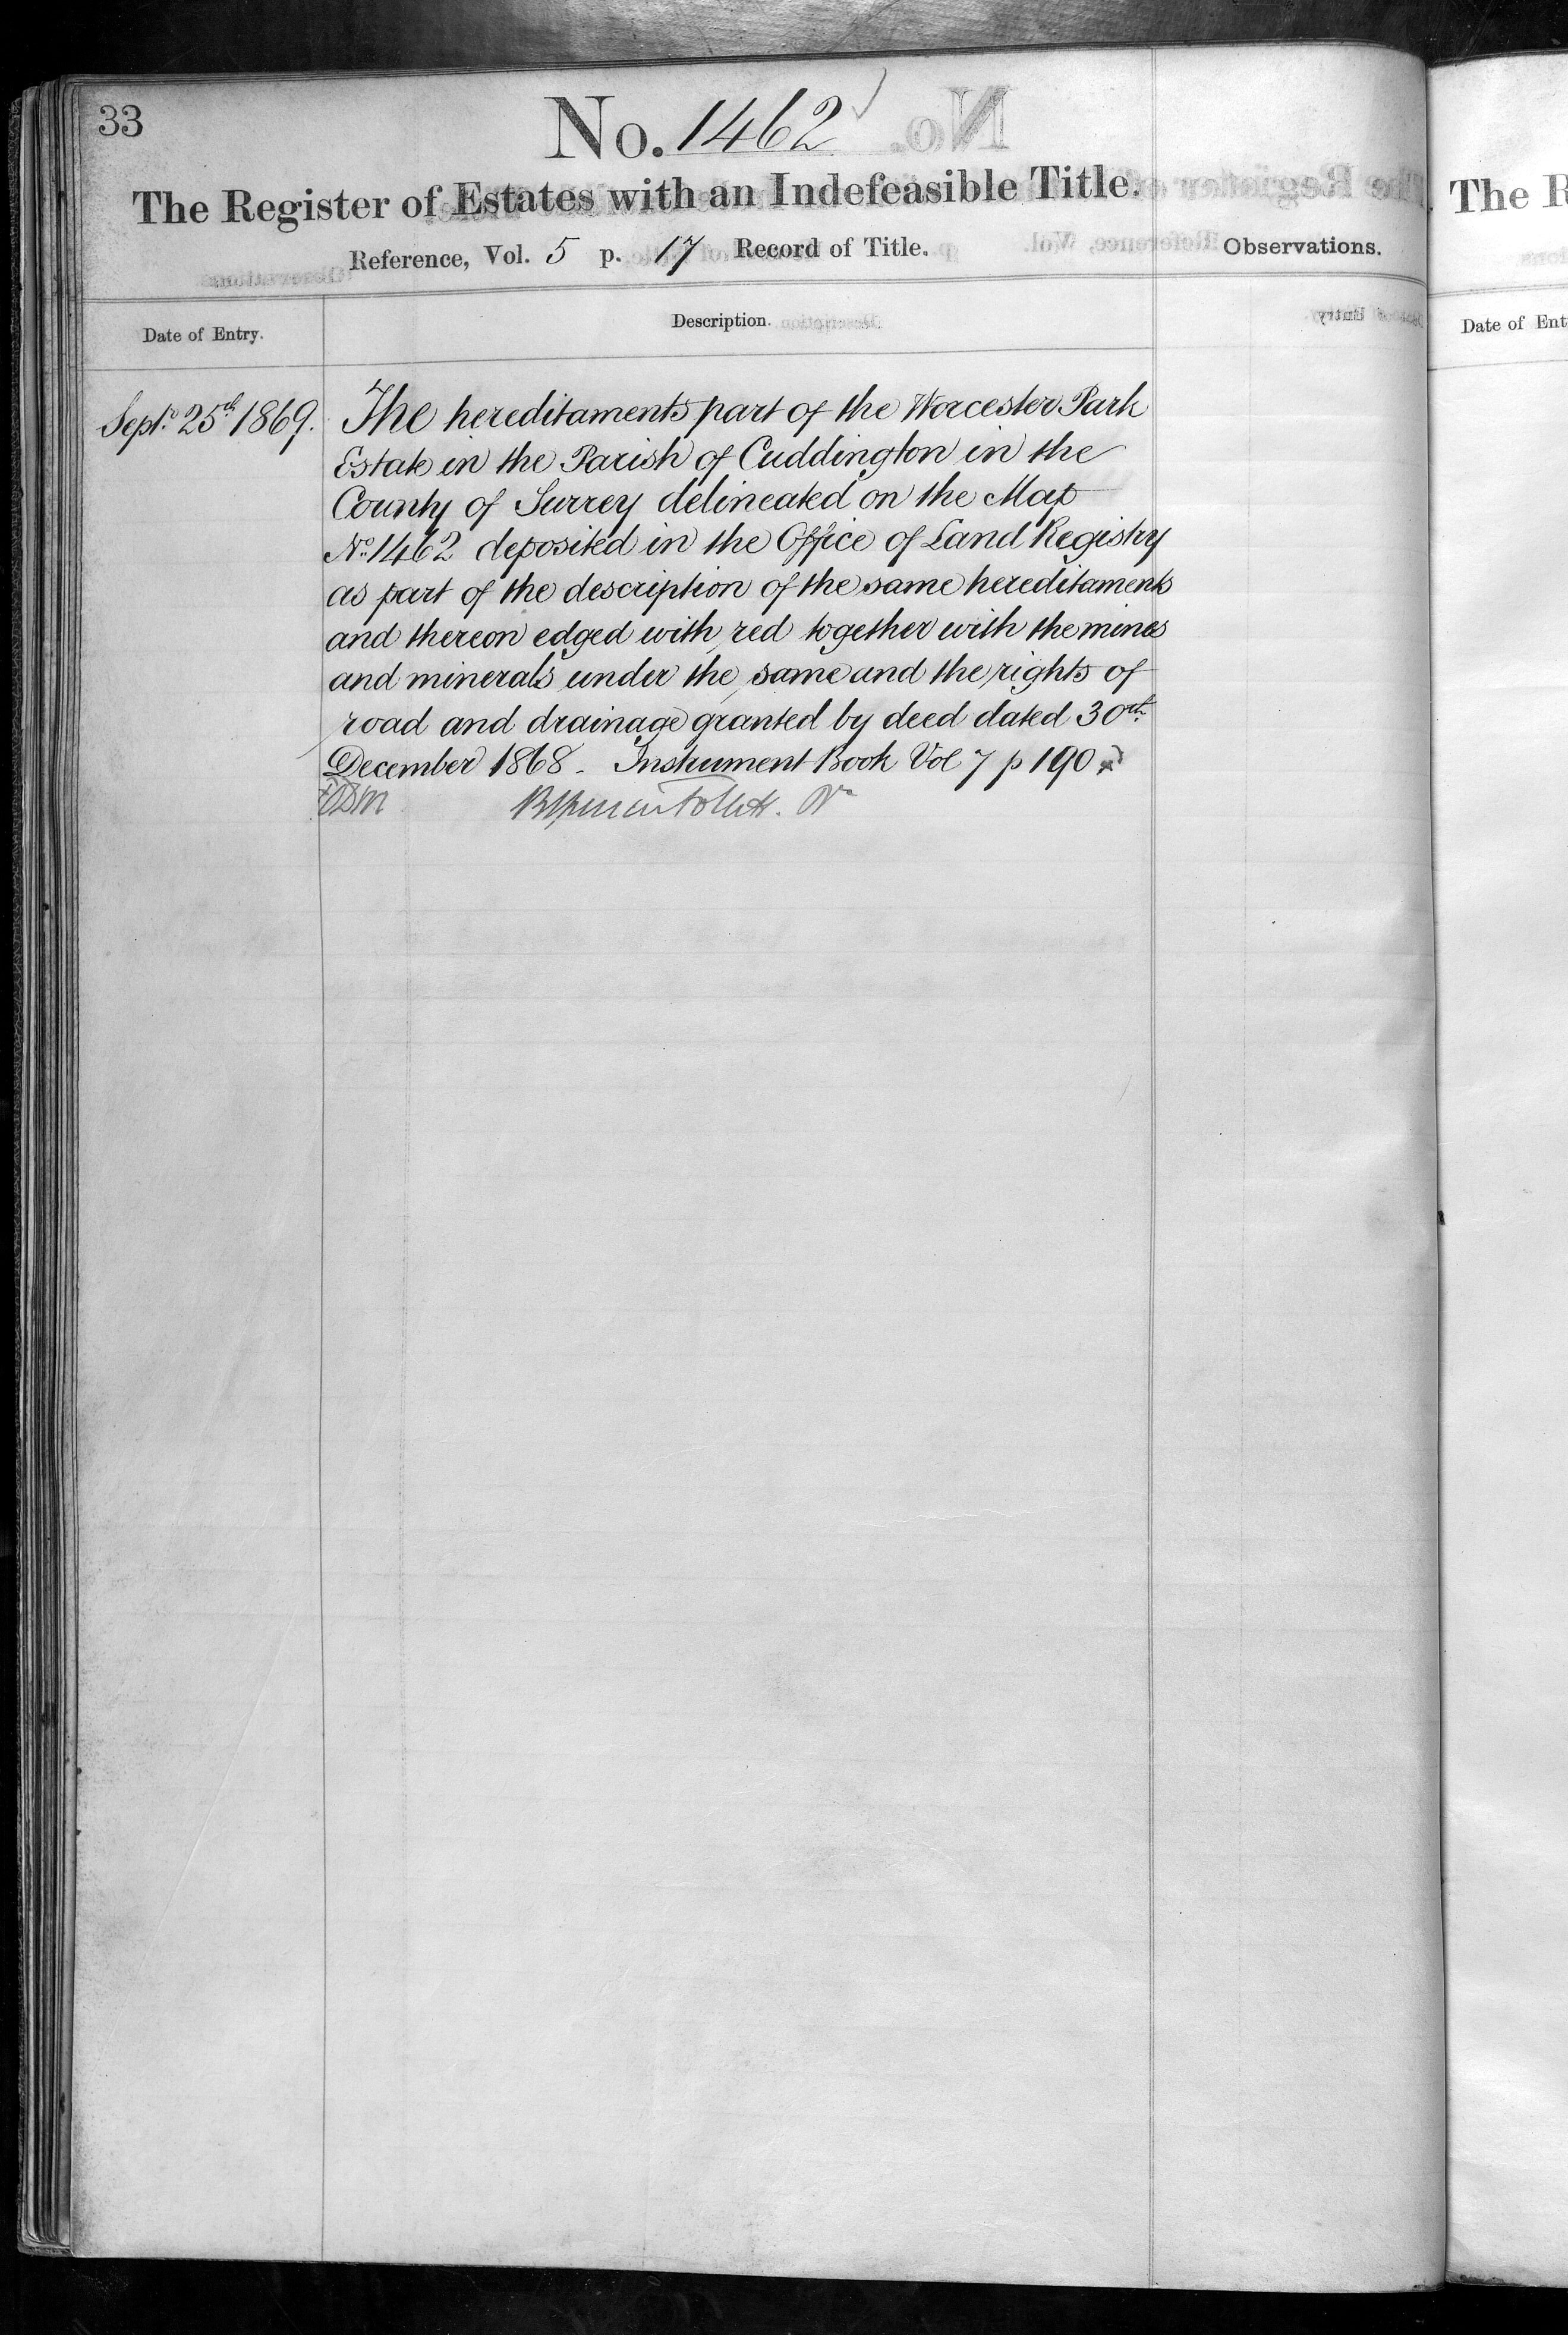 33
No. 1462
The Register of Estates with an Indefeasible Title.
Reference, Vol. 5 p. 17 Record of Title.
Observations.
Date of Entry.
Description.
Sept. 25th 1869.
The hereditaments part of the Worcester Park
Estate in the Parish of Cuddington in the
County of Surrey delineated on the Map
No. 1462 deposited in the Office of Land Registry
as part of the description of the same hereditaments
and thereon edged with red together with the mines
and minerals under the same and the rights of
road and drainage granted by deed dated 30th
December 1868 - Instrument Book Vol 7 p 190
The R
Date of Ent